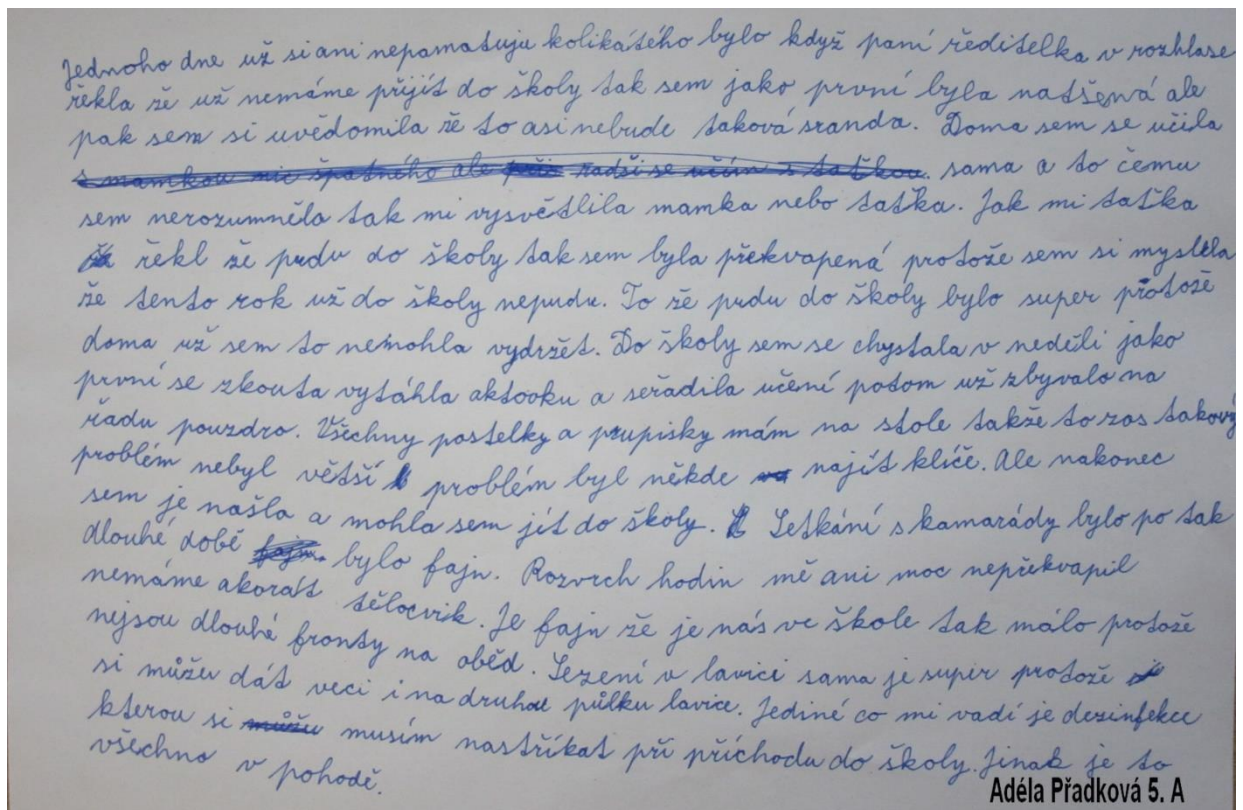 Jednoho dne už si ani nepamatuju kolikátého bylo když paní ředitelka v rozhlase
řekla že už nemáme přijít do školy tak sem jako první byla natšená ale
pak sem si uvědomila že to asi nebude taková sranda. Doma sem se učila
s mamkou nic špatného ale radši se učím s taťkou. sama a to čemu
sem nerozumněla tak mi vysvětlila mamka nebo taťka. Jak mi taťka
řekl že pudu do školy tak sem byla překvapená protože sem si myslela
že tento rok už do školy nepudu. To že pudu do školy bylo super protože
doma už sem to nemohla vydržet. Do školy sem se chystala v neděli jako
první se zkouta vytáhla aktovku a seřadila učení potom už zbyvalo na
řadu pouzdro. Všechny pastelky a prupisky mám na stole takže to zas takový
problém nebyl větší problém byl někde najít klíče. Ale nakonec
sem je našla a mohla sem jít do školy. Setkání s kamarády bylo po tak
dlouhé době fajn. bylo fajn. Rozvrch hodin mě ani moc nepřekvapil
nemáme akorát tělocvik. Je fajn že je nás ve škole tak málo protože
nejsou dlouhé fronty na oběd. Sezení v lavici sama je super protože
si můžu dát veci i na druhou půlku lavice. Jediné co mi vadí je dezinfekce
kterou si můžu musím nastříkat při příchodu do školy. Jinak je to
všechno v pohodě.
Adéla Přadková 5. A